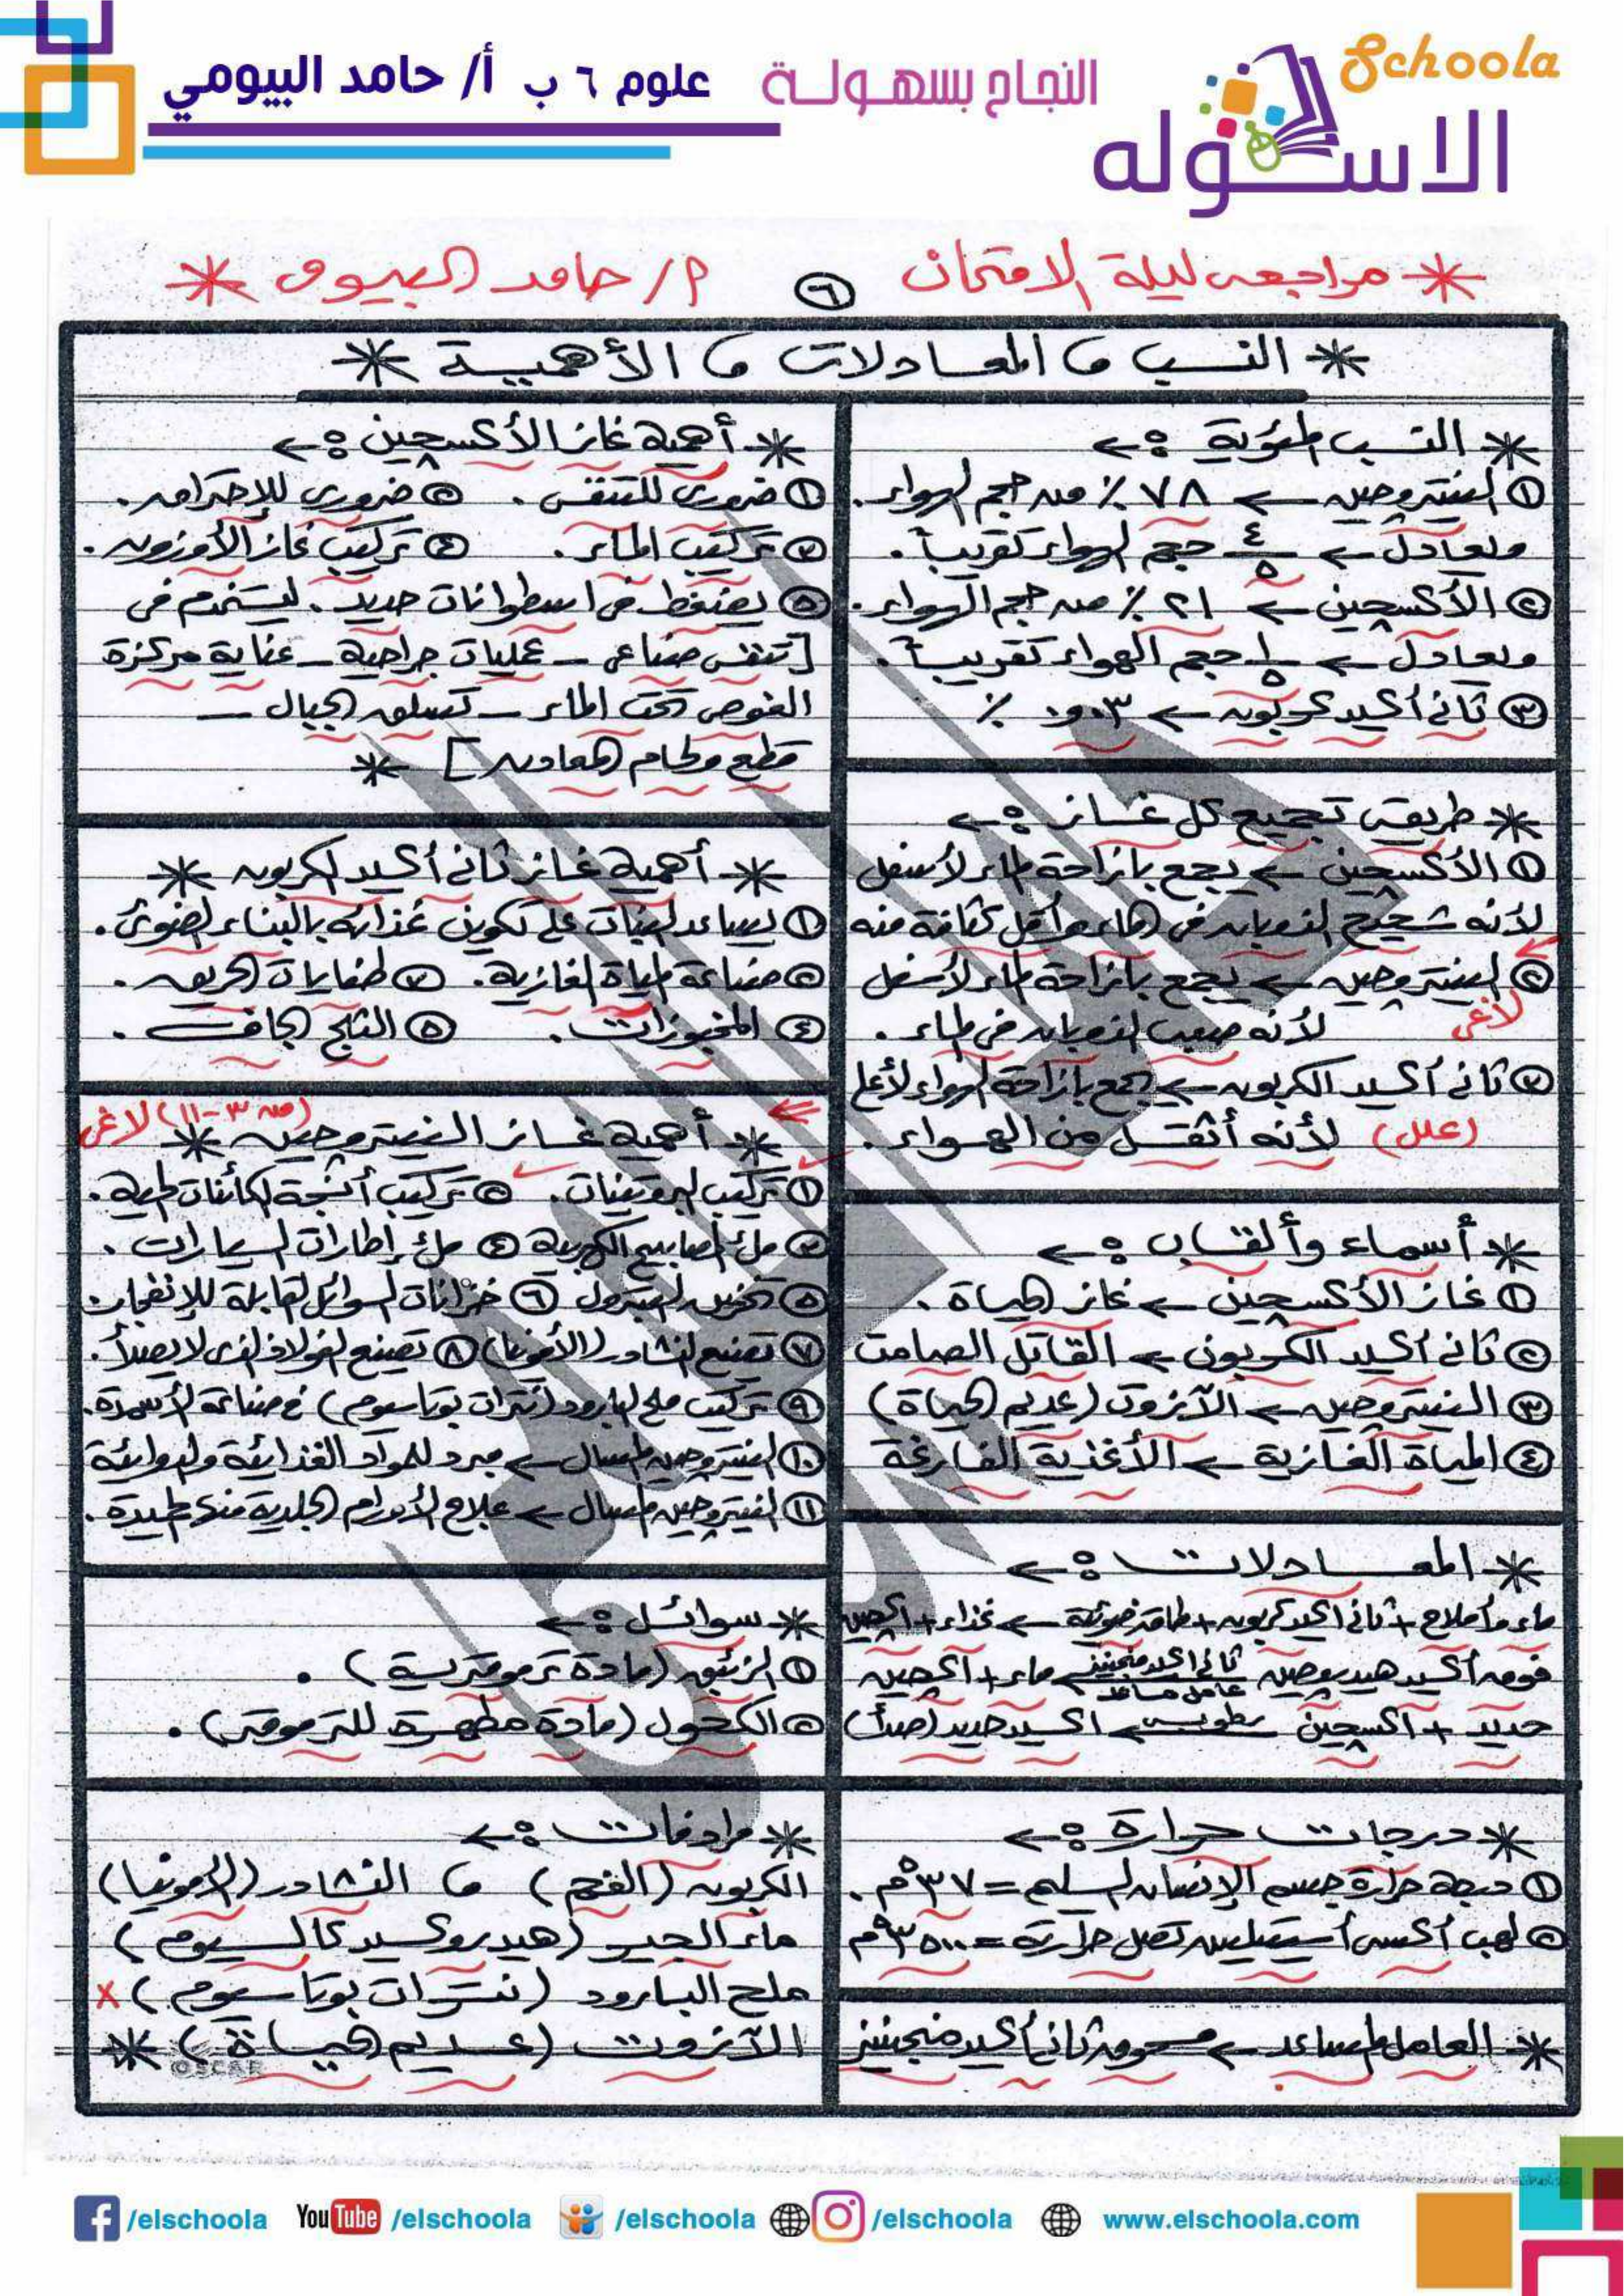 Schoola
الاسكوله
النجاح بسهولة
علوم ٦ ب أ/ حامد البيومي
* مراجعة ليلة الامتحان ٦ أ/ حامد البيومى *
* النسب ، المعادلات ، الأهمية *
* النسب المئوية :-
١ النيتروجين ← ٧٨ ٪ من حجم الهواء.
ويعادل ← ٤/٥ حجم الهواء تقريباً.
٢ الأكسجين ← ٢١ ٪ من حجم الهواء.
ويعادل ← ١/٥ حجم الهواء تقريباً.
٣ ثانى أكسيد كربون ← ٠,٠٣ ٪
* طريقة تجميع كل غاز :-
١ الأكسجين ← يجمع بإزاحة الماء لأسفل
لأنه شحيح الذوبان فى الماء وأقل كثافة منه
٢ النيتروجين ← يجمع بإزاحة الماء لأسفل
لأنه صعب الذوبان فى الماء. لاغى
٣ ثانى أكسيد الكربون ← يجمع بإزاحة الهواء لأعلى
(علل) لأنه أثقل من الهواء.
* أسماء وألقاب :-
١ غاز الأكسجين ← غاز الحياة.
٢ ثانى أكسيد الكربون ← القاتل الصامت
٣ النيتروجين ← الآزوت (عديم الحياة)
٤ المياة الغازية ← الأغذية الفارغة
* المعادلات :-
ماء وأملاح + ثانى أكسيد كربون + طاقة ضوئية ← غذاء + أكسجين
فوق أكسيد هيدروجين ثانى أكسيد منجنيز عامل مساعد ← ماء + أكسجين
حديد + أكسجين رطوبة ← أكسيد حديد (صدأ)
* درجات حرارة :-
١ درجة حرارة جسم الإنسان السليم = ٣٧°م.
٢ لهب أكسى أستيلين تصل حرارته = ٣٥٠٠°م
* العامل المساعد ← مسحوق ثانى أكسيد منجنيز
* أهمية غاز الأكسجين :-
١ ضرورى للتنفس. ٢ ضرورى للإحتراق.
٣ تركيب الماء. ٤ تركيب غاز الأوزون.
٥ يضغط فى اسطوانات حديد. ليستخدم فى
[تنفس صناعى - عمليات جراحية - عناية مركزة
الغوص تحت الماء - تسلق الجبال -
قطع ولحام المعادن] *
* أهمية غاز ثانى أكسيد الكربون *
١ يساعد النبات على تكوين غذائه بالبناء الضوئى.
٢ صناعة المياة الغازية. ٣ طفايات الحريق.
٤ المخبوزات. ٥ الثلج الجاف.
* أهمية غاز النيتروجين * (من ٣-١١) لاغى
١ تركيب البروتينات. ٢ تركيب أنسجة الكائنات الحية.
٣ ملئ المصابيح الكهربية ٤ ملئ إطارات السيارات.
٥ تخزين البترول ٦ خزانات السوائل القابلة للإنفجار.
٧ تصنيع النشادر (الأمونيا) ٨ تصنيع الفولاذ الذى لا يصدأ.
٩ تركيب ملح البارود (نترات بوتاسيوم) فى صناعة الأسمدة.
١٠ النيتروجين المسال ← مبرد للمواد الغذائية والدوائية
١١ النيتروجين المسال ← علاج الأورام الجلدية
* سوائل :-
١ الزئبق (مادة ترمومترية).
٢ الكحول (مادة مطهرة للترمومتر).
* مرادفات :-
الكربون (الفحم) ، النشادر (الأمونيا)
ماء الجير (هيدروكسيد كالسيوم)
ملح البارود (نترات بوتاسيوم) x
الآزوت (عديم الحياة) *
OSCAR
/elschoola YouTube /elschoola /elschoola /elschoola www.elschoola.com